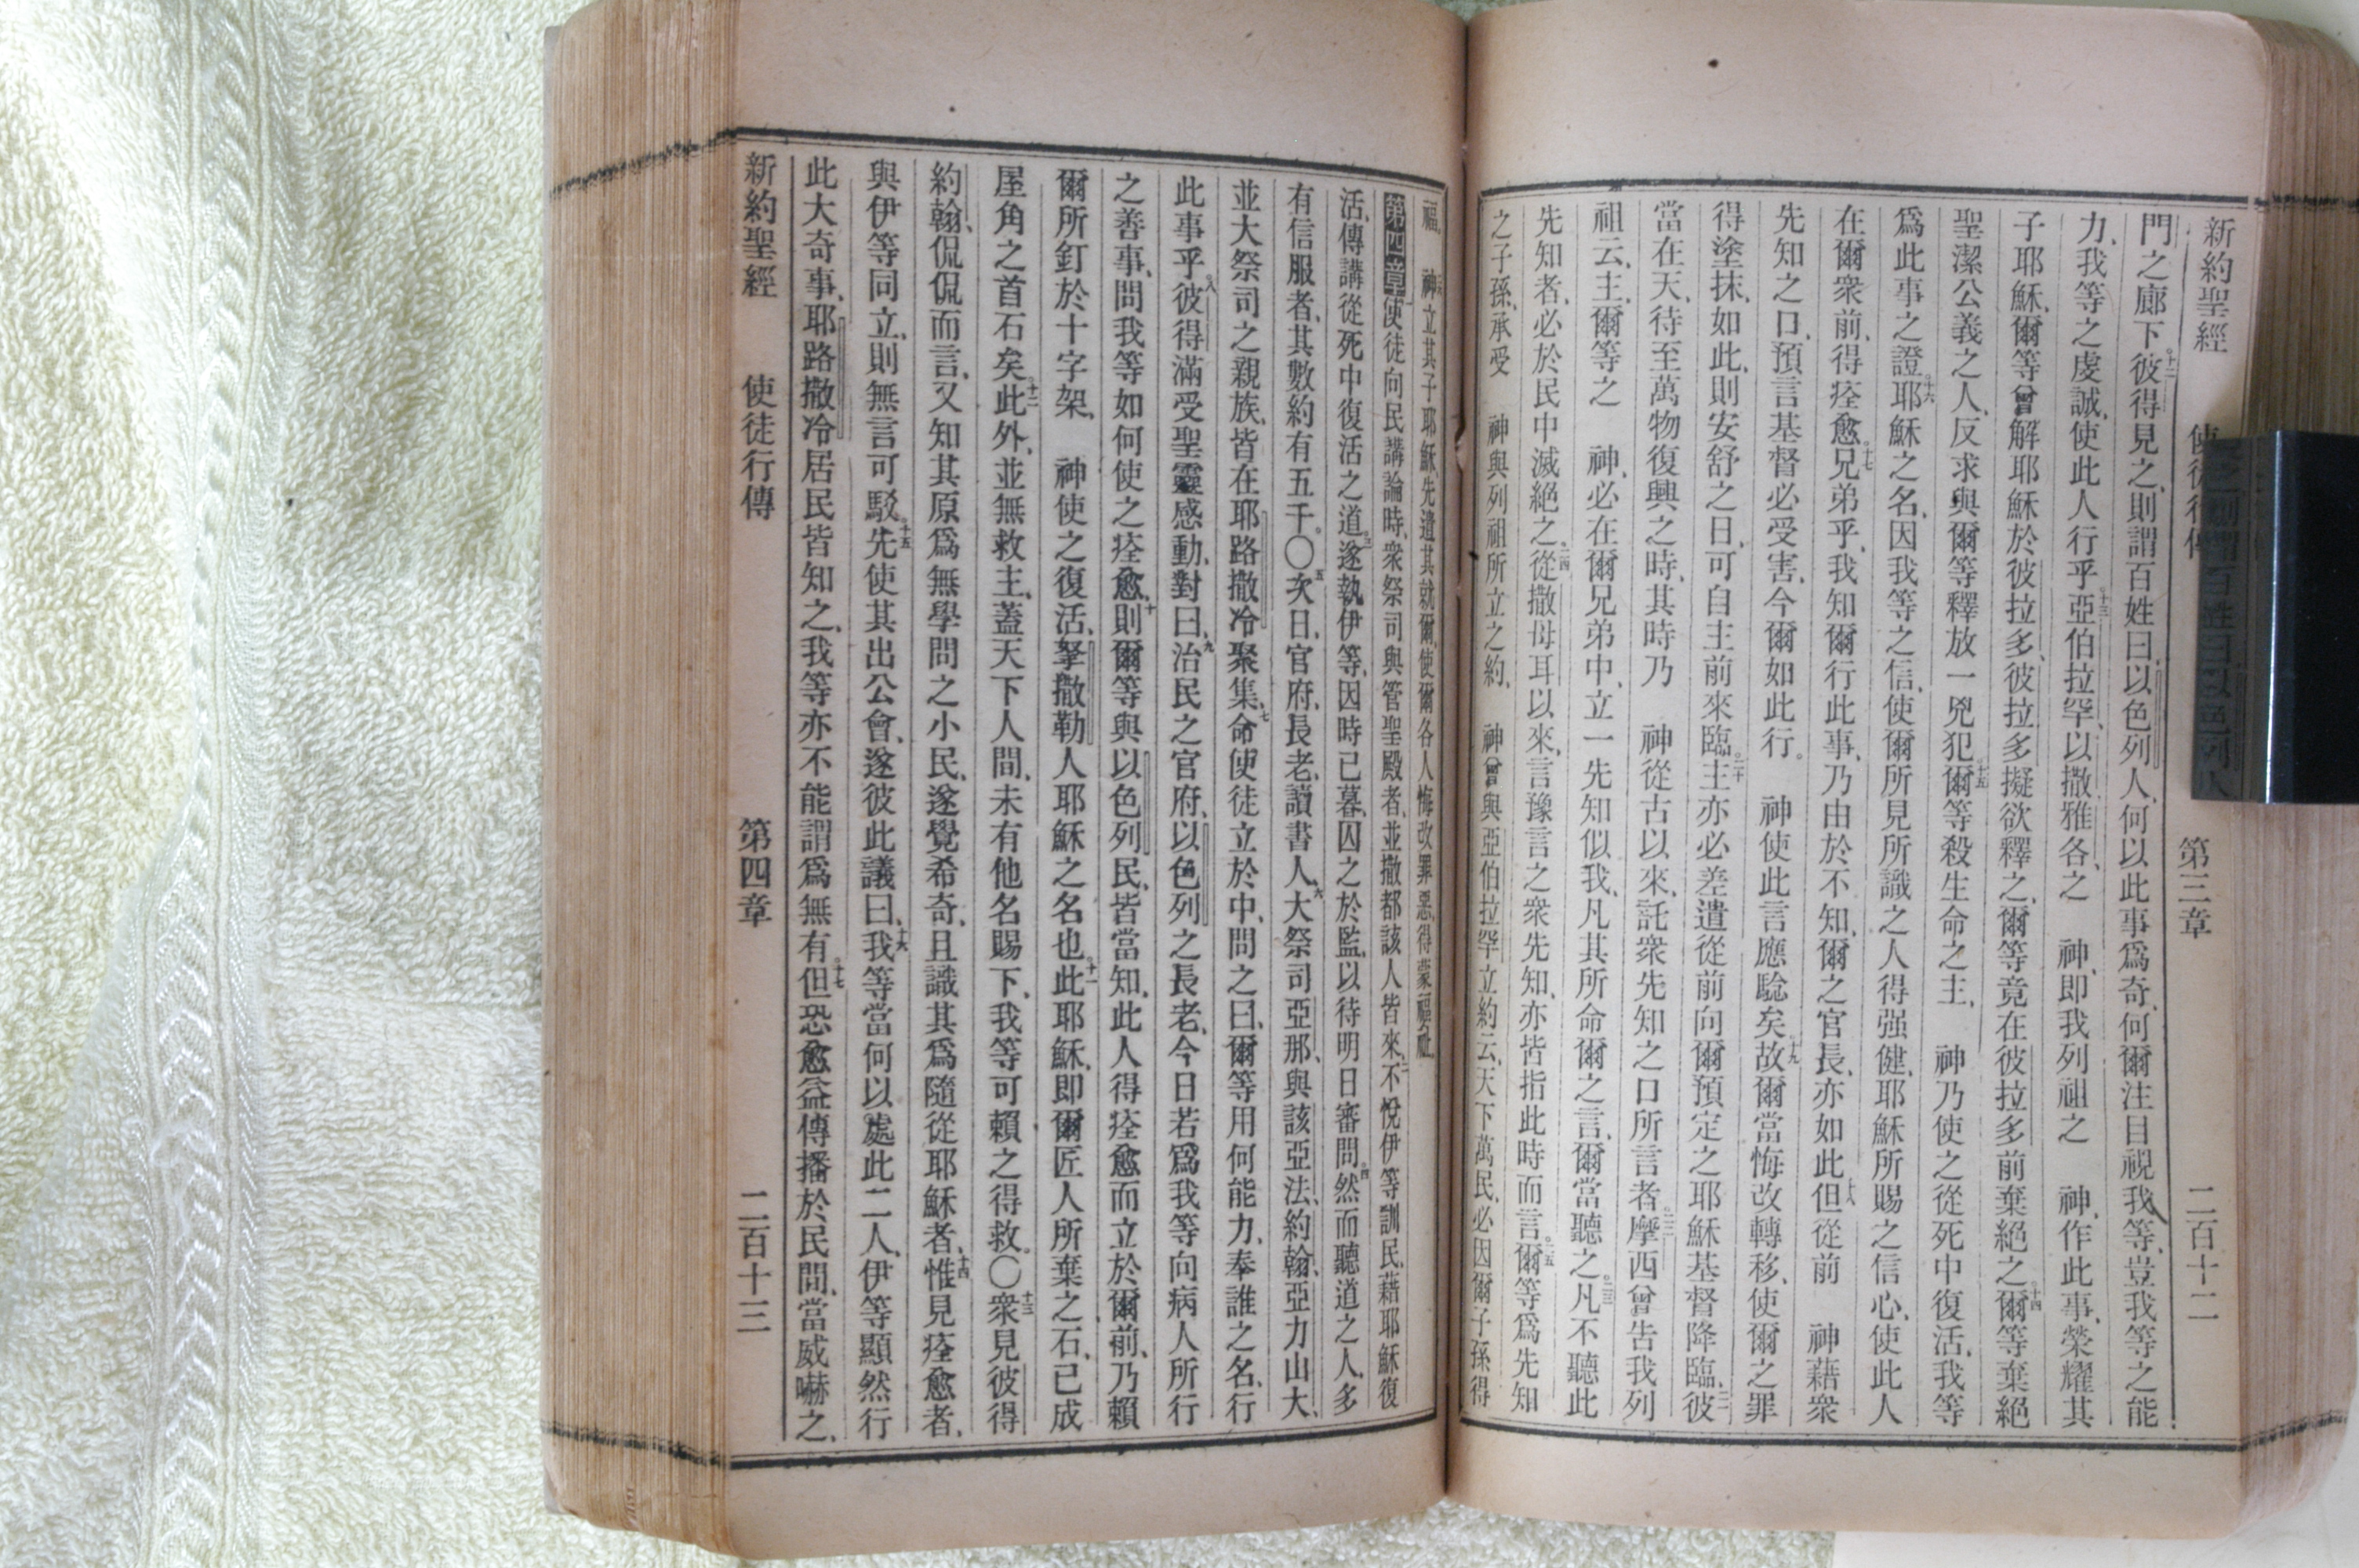 新約聖經 使徒行傳 第三章 二百十二
門之廊下。十二彼得見之、則謂百姓曰、以色列人、何以此事爲奇、何爾注目視我等、豈我等之能
力、我等之虔誠、使此人行乎。十三亞伯拉罕、以撒雅各之 神、即我列祖之 神、作此事、榮耀其
子耶穌、爾等曾解耶穌於彼拉多、彼拉多擬欲釋之、爾等竟在彼拉多前棄絕之。十四爾等棄絕
聖潔公義之人、反求與爾等釋放一兇犯。十五爾等殺生命之主、 神乃使之從死中復活、我等
爲此事之證。十六耶穌之名、因我等之信、使爾所見所識之人得强健、耶穌所賜之信心、使此人
在爾衆前、得痊愈。十七兄弟乎、我知爾行此事、乃由於不知、爾之官長、亦如此。十八但從前 神藉衆
先知之口、預言基督必受害、今爾如此行。 神使此言應騐矣。十九故爾當悔改轉移、使爾之罪
得塗抹、如此、則安舒之日、可自主前來臨。二十主亦必差遣從前向爾預定之耶穌基督降臨。二一彼
當在天、待至萬物復興之時、其時乃 神從古以來、託衆先知之口所言者。二二摩西曾告我列
祖云、主、爾等之 神、必在爾兄弟中、立一先知似我、凡其所命爾之言、爾當聽之。二三凡不聽此
先知者、必於民中滅絕之。二四從撒母耳以來、言豫言之衆先知、亦皆指此時而言。二五爾等爲先知
之子孫、承受 神與列祖所立之約、 神曾與亞伯拉罕立約云、天下萬民、必因爾子孫得
福、 二六神立其子耶穌、先遣其就爾、使爾各人悔改罪惡、得蒙福祉。
第四章 一使徒向民講論時、衆祭司與管聖殿者、並撒都該人皆來、二不悅伊等訓民、藉耶穌復
活、傳講從死中復活之道。三遂執伊等、因時已暮、囚之於監、以待明日審問。四然而聽道之人、多
有信服者、其數約有五千。〇五次日、官府、長老、讀書人、六大祭司亞那、與該亞法、約翰、亞力山大、
並大祭司之親族、皆在耶路撒冷聚集、七命使徒立於中、問之曰、爾等用何能力、奉誰之名、行
此事乎。八彼得滿受聖靈感動、對曰、九治民之官府、以色列之長老、今日若爲我等向病人所行
之善事、問我等如何使之痊愈、十則爾等與以色列民、皆當知、此人得痊愈而立於爾前、乃賴
爾所釘於十字架、 神使之復活、拏撒勒人耶穌之名也。十一此耶穌、即爾匠人所棄之石、已成
屋角之首石矣。十二此外、並無救主、蓋天下人間、未有他名賜下、我等可賴之得救。〇十三衆見彼得
約翰、侃侃而言、又知其原爲無學問之小民、遂覺希奇、且識其爲隨從耶穌者、十四惟見痊愈者、
與伊等同立、則無言可駁。十五先使其出公會、遂彼此議曰、十六我等當何以處此二人、伊等顯然行
此大奇事、耶路撒冷居民皆知之、我等亦不能謂爲無有。十七但恐愈益傳播於民間、當威嚇之、
新約聖經 使徒行傳 第四章 二百十三